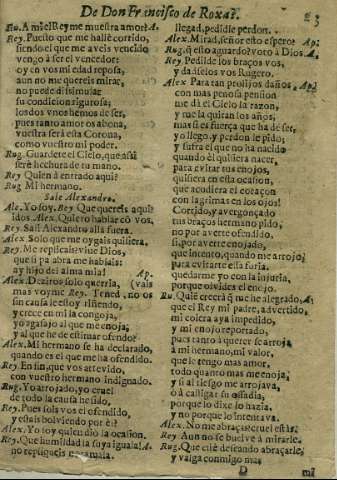 De Don Francisco de Roxas. 23
A mi el Rey me muestra amor? A.
Rey. Puesto que me hallè corrido,
siendo el que me aveis vencido
vengo à ser el vencedor:
oy en vos mi edad reposa,
aun no me quereis mirar,
no puede disimular
su condicion rigurosa;
los dos vnos hemos de ser,
pues tanto amor os abona,
vuestra serà esta Corona,
como vuestro mi poder.
Rug. Guardete el Cielo, que assi
serè hechura de tu mano.
Rey Quien à entrado aqui?
Rug Mi hermano.
Sale Alexandro.
Ale. Yo soy. Rey Que quereis aqui?
idos Alex. Quiero hablar cõ vos.
Rey. Salì Alexandro allà fuera.
Alex Solo que me oygais quisiera.
Rey. Me replicais? vive Dios,
que si para me hablais:
ay hijo del alma mia! Ap.
Alex. Deziros solo querria, (vais
mas voyme Rey. Tened, no os
sin causa le estoy riñendo,
y crece en mi la congoja,
yo agasajo al que me enoja;
y al que he de estimar ofendo?
Alex. Mi hermano se ha declarado,
quando es el que me ha ofendido.
Rey. En fin, que vos atrevido,
con vuestro hermano indignado.
Rug. Yo arrojado, yo cruel
de todo la causa he sido.
Rey. Pues sois vos el ofendido,
y estais bolviendo por èl?
Alex. Yo soy quien dio la ocasion.
Rey. Que humildad la suya iguala! A.
no repliqueis noramala.
llegad, pedidle perdon.
Alex. Mirad, señor esto espero? Ap:
Rug. q̃ esto aguardo? voto à Dios. A.
Rey. Pedilde los braços vos,
y dadselos vos Rugero.
Alex Para tan prolijos daños, Ap.
con mas penosa passion
me dà el Cielo la razon,
y me la quitan los años,
mas si es fuerça que ha de ser,
yo llego, y perdon le pido;
y sufra el que no ha nacido
quando èl quisiera nacer,
para evitar tus enojos,
quisiera en esta ocasion,
que acudiera el coraçon
con lagrimas en los ojos!
Corrido, y avergonçado
tus braços hermano pido,
no por averte ofendido.
si, por averte enojado,
que intento, quando me arrojo
para evitarte essa furia.
quedarme yo con la injuria,
porque olvides el enojo.
Ru. Quiẽ creerà q̃ me he alegrado, A.
que el Rey mi padre, advertido,
mi colera aya impedido,
y mi enojo reportado,
pues tanto à querer se arroja
à mi hermano, mi valor,
que le tengo mas amor,
todo quanto mas me enoja,
y si al riesgo me arrojava,
ò à castigar su ossadia,
porque lo dixe lo hazia.
y no porque lo intentava.
Alex. No me abraças cruel estàs?
Rey Aun no se buelve à mirarle.
Rug. Que este deseando abraçarle,
y valga conmigo mas
D mi